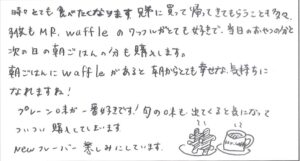 時々とても食べたくなります。兄弟に買って帰ってきてもらうこと多々。
我家もMR.waffleのワッフルがとても好きで、当日のおやつの分と
次の日の朝ごはんの分も購入します。
朝ごはんにwaffleがあると朝からとても幸せな気持ちに
なれますね!
プレーン味が一番好きです!旬の味も出てくると気になって
ついつい購入してしまいます
Newフレーバー楽しみにしています。